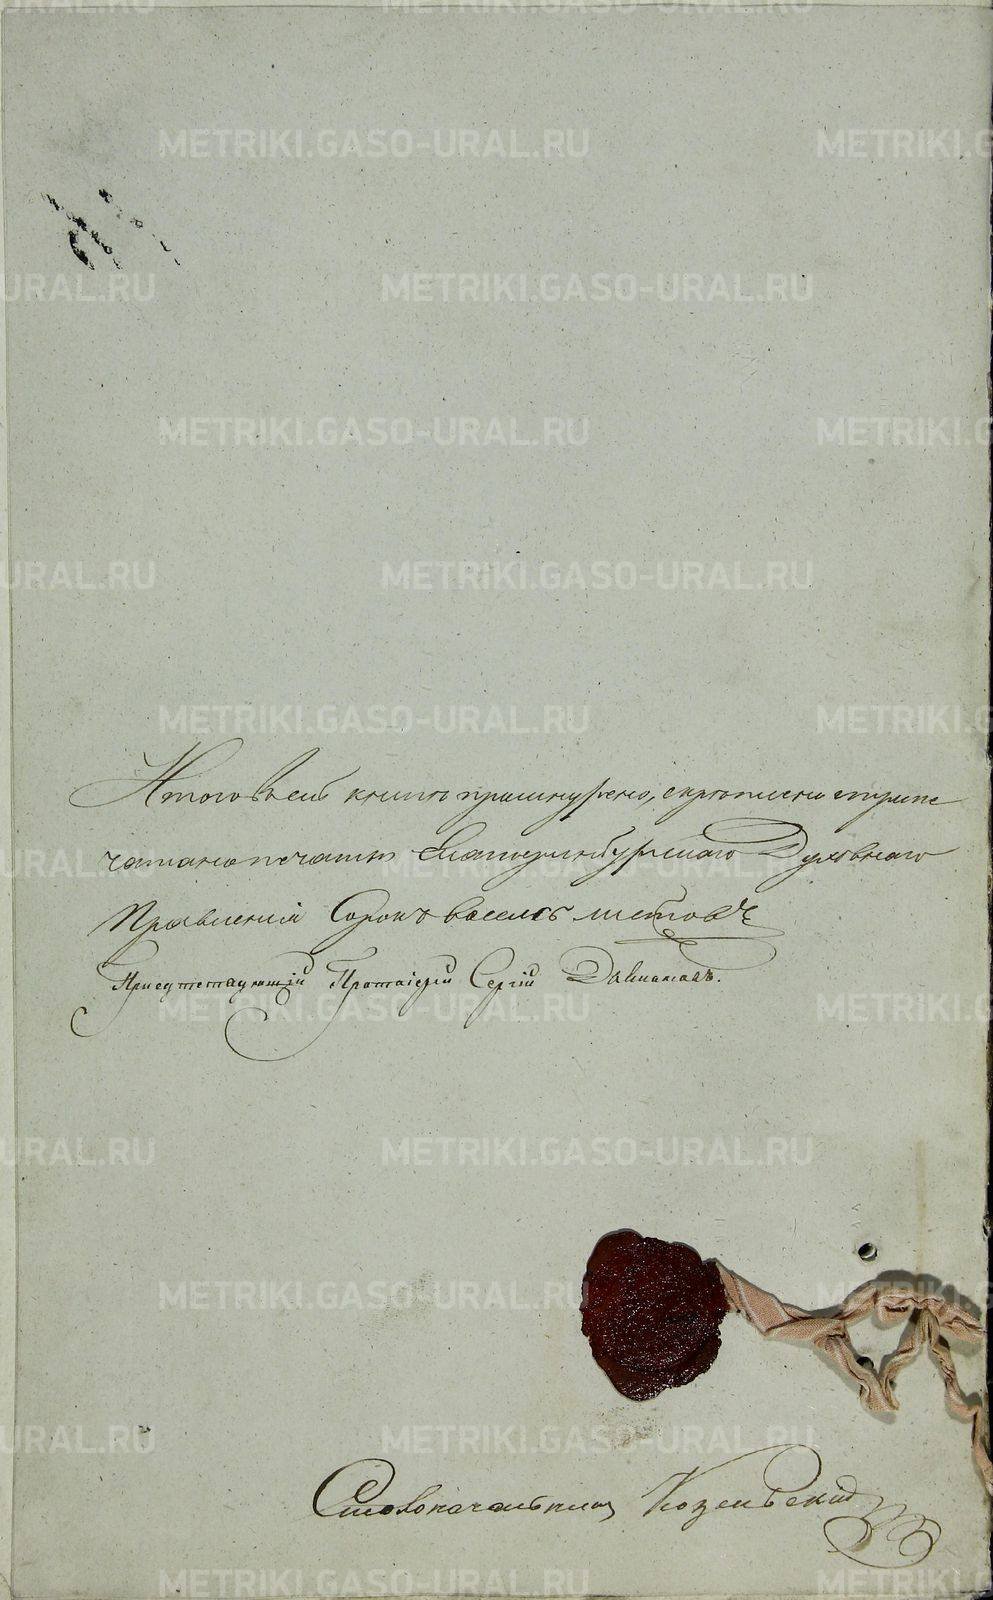 Итого въ сей книгѣ прошнуровано, скрѣплено и припе
чатано печатью Екатеринбургскаго Духовнаго
Правленія Сорокъ восемь листовъ
Присутствующій Протоіерей Сергій
Столоначальникъ Козельскій
METRIKI.GASO-URAL.RU